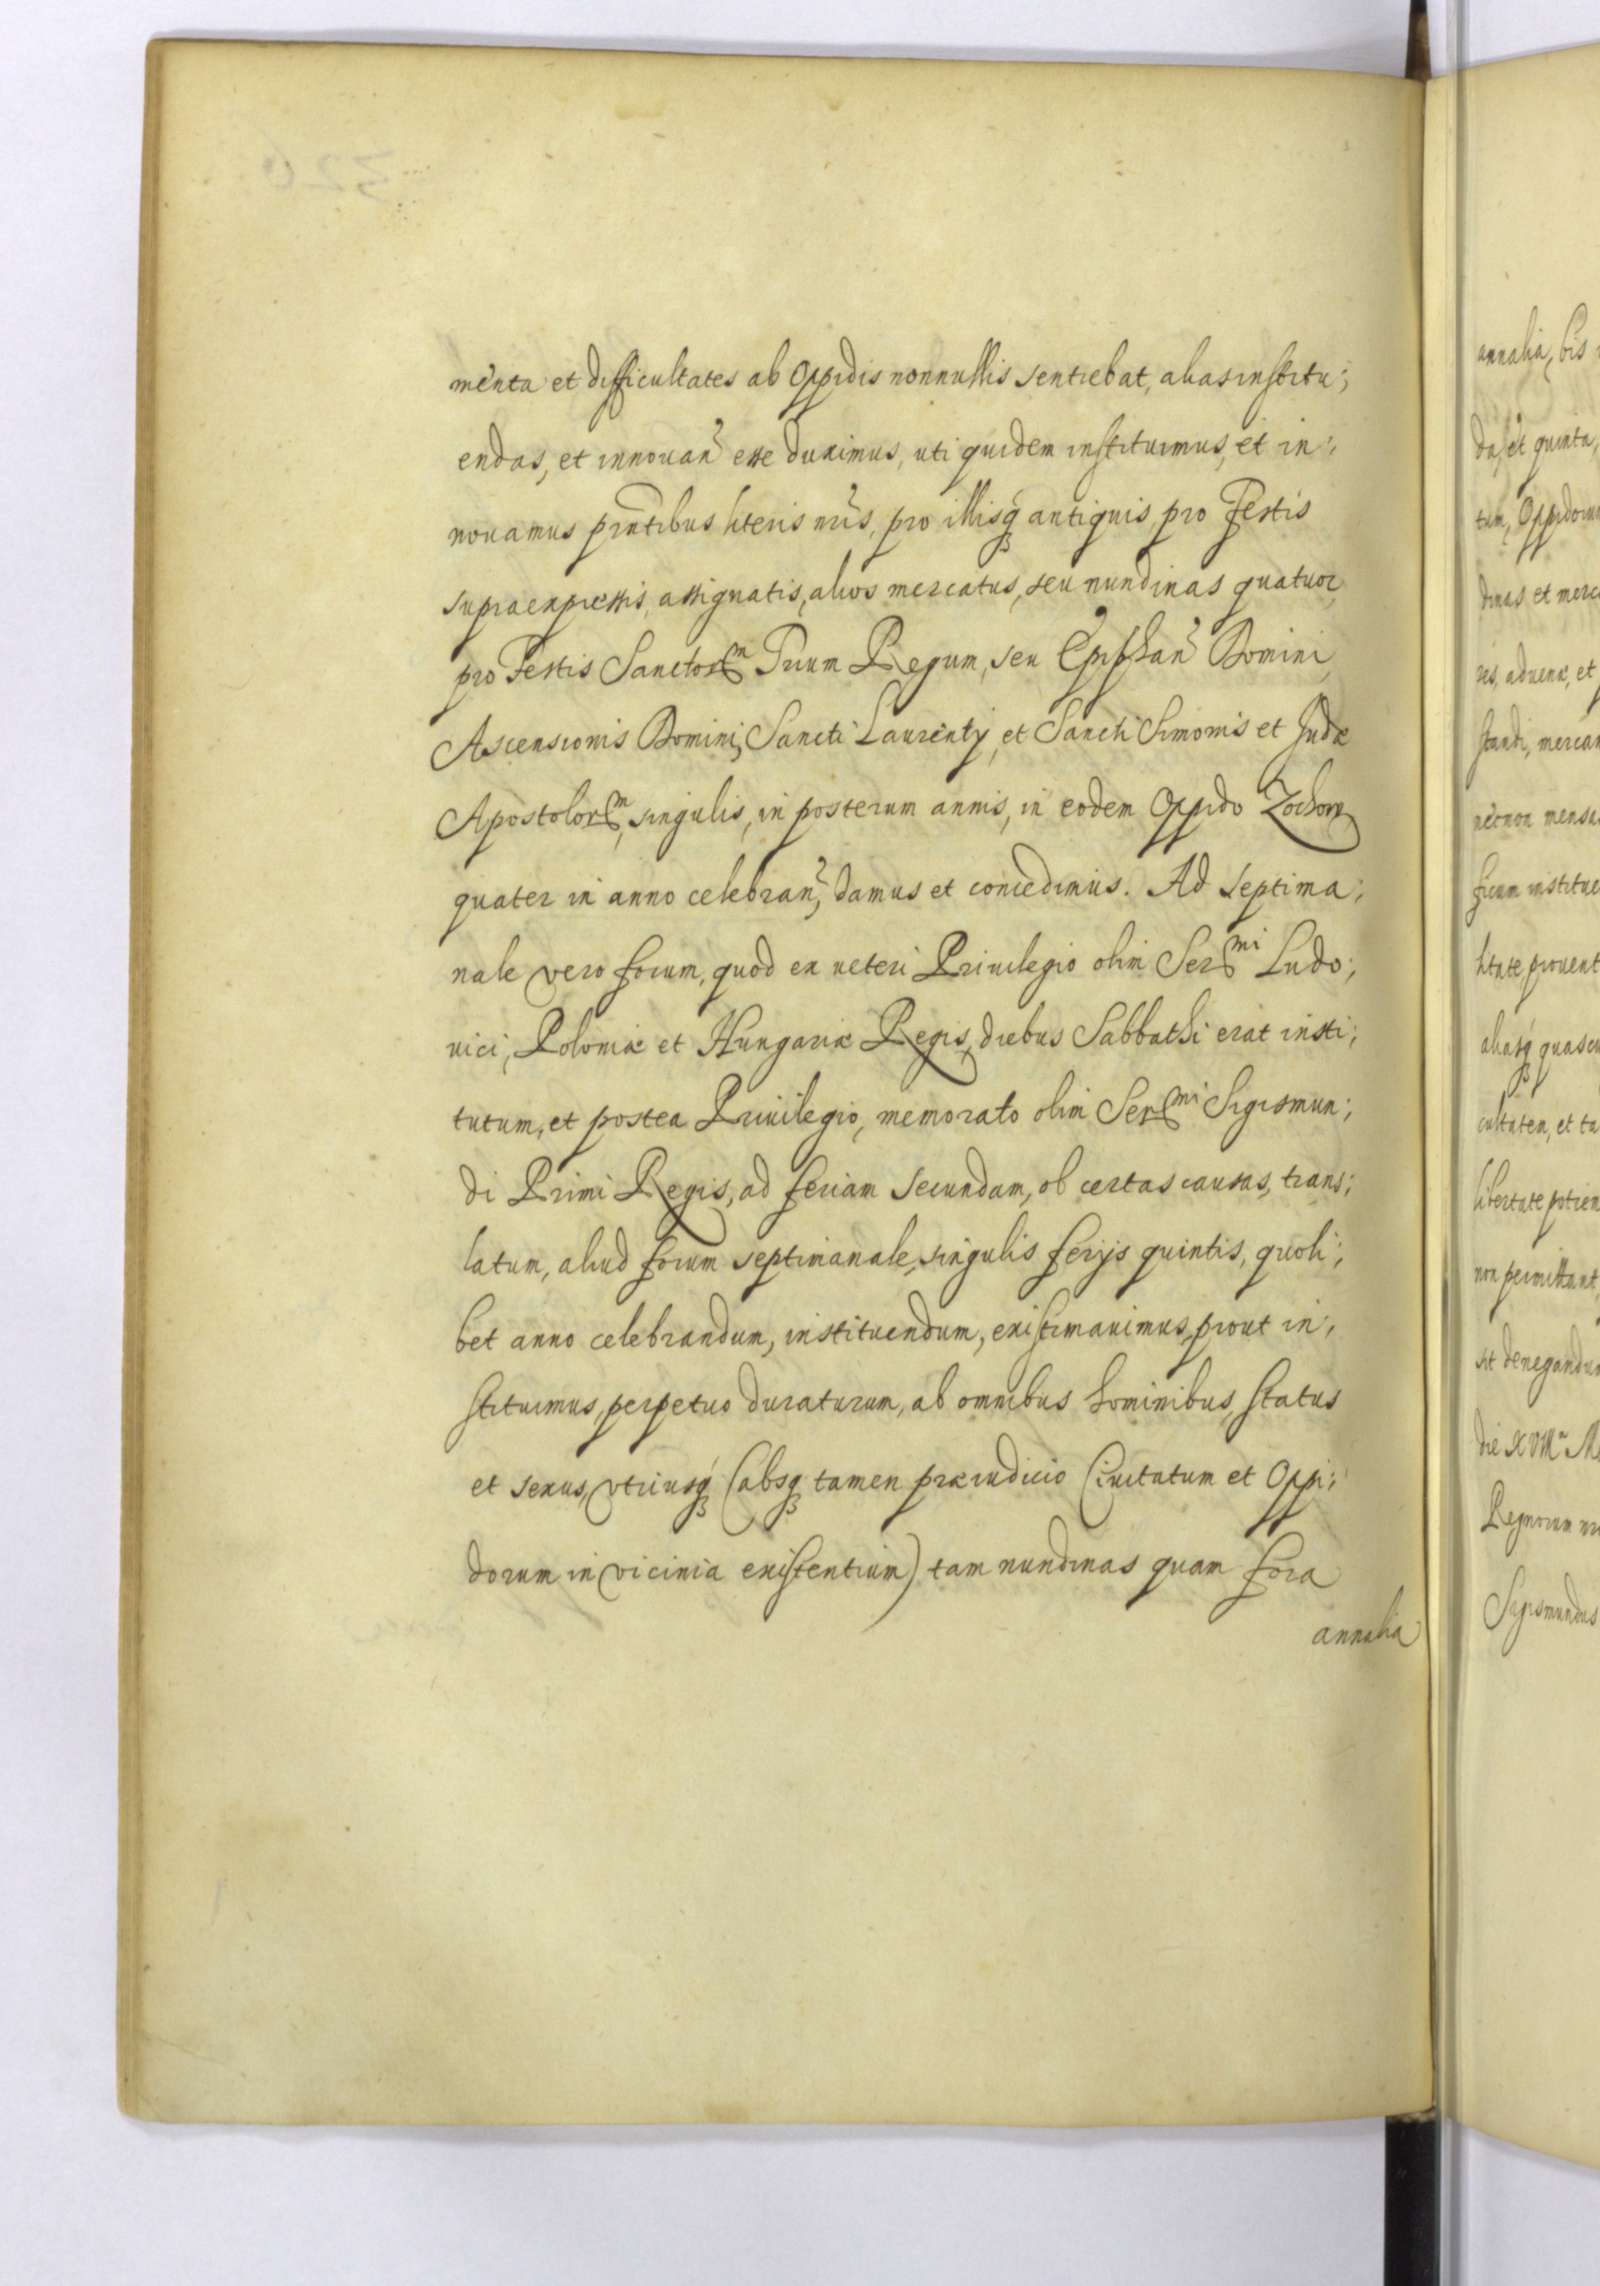 menta et difficultates ab Oppidis nonnullis sentiebat, alias institu;
endas, et innouan̄ esse duximus, uti quidem instituimus, et in;
nouamus pn̄tibus literis nr̄is, pro illisq́ʒ antiquis, pro Festis
supraexpressis, assignatis, alios mercatus, seu nundinas quatuor,
pro Festis Sanctor͡m Trium Regum, seu Epiphan̄ Domini,
Ascensionis Domini, Sancti Laurentij, et Sancti Simonis et Judæ
Apostolor͡m, singulis, in posterum annis, in eodem Oppido Zochow
quater in anno celebran̄, damus et concedimus. Ad septima;
nale vero forum, quod ex veteri Priuilegio olim Ser͡mi Ludo;
uici, Poloniæ et Hungariæ Regis, diebus Sabbathi erat insti;
tutum, et postea Priuilegio, memorato olim Ser͡mi Sigismun;
di Primi Regis, ad feriam secundam, ob certas causas, trans;
latum, aliud forum septimanale, singulis ferijs quintis, quoli;
bet anno celebrandum, instituendum, existimauimus, prout in;
stituimus, perpetuo duraturum, ab omnibus hominibus, status
et sexus, vtriusq́ʒ (absqʒ tamen præiudicio Ciuitatum et Oppi;
dorum in vicinia existentium) tam nundinas quam fora
annalia
annalia, bis
da, et quinta,
tum, Oppidorum
dinas et merc
res, aduenæ, et
standi, mercan
nécnon mensa
ficum institue
litate prouent
aliasq́ʒ quascu
cultatem, et ta
libertate potien
non permittant,
sit denegandum
die XVIIIa M
Regnorum nr
Sigismundus